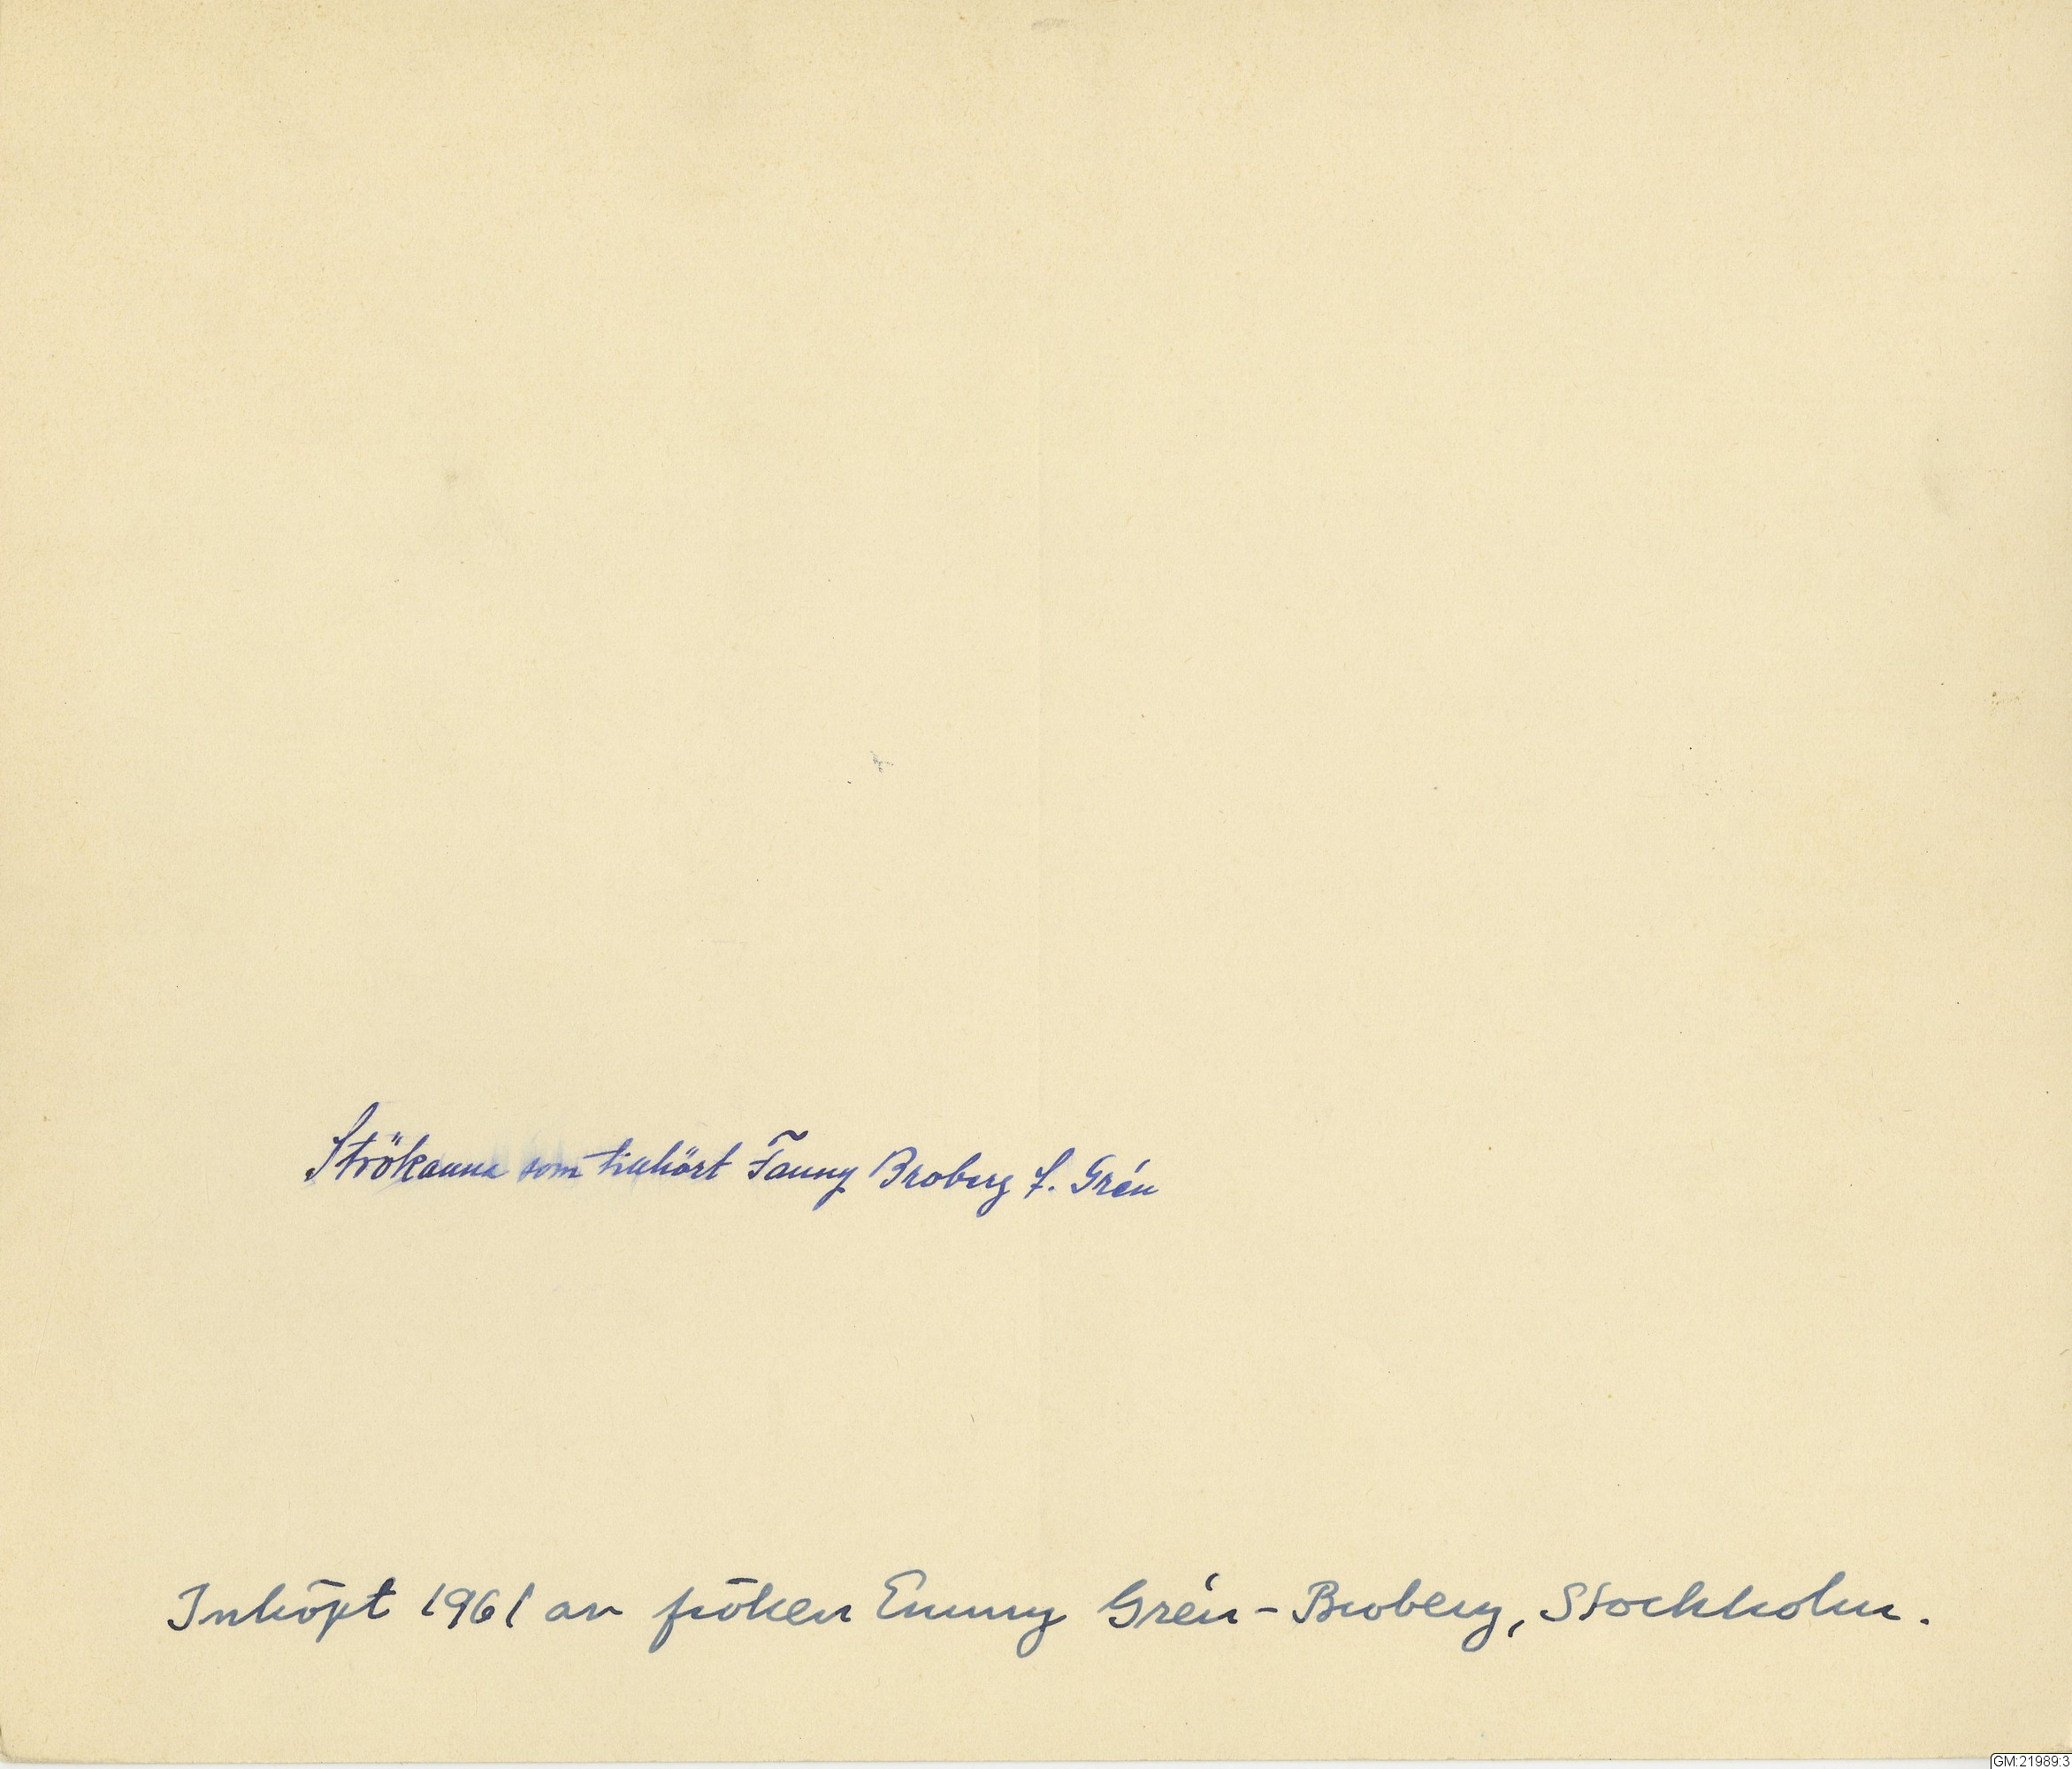 Strökanna som tillhört Fanny Broberg f. Grén
Inköpt 1961 av fröken Emmy Grén-Broberg, Stockholm.
GM:21989:3